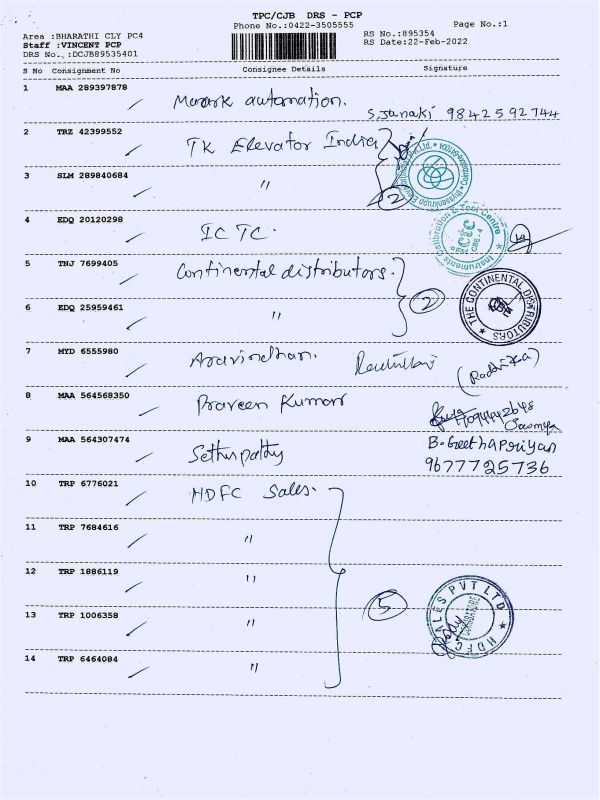 TPC/CJB DRS - PCP
Phone No.:0422-3505555
Page No.:1
Area :BHARATHI CLY PC4
RS No.:895354
Staff :VINCENT PCP
RS Date:22-Feb-2022
DRS No.:DCJB89535401
S No Consignment No Consignee Details Signature
1 MAA 289397878 automation. S.Janaki 9842592744
2 TRZ 42399552 TK Elevator India
3 SLM 289840684 " 2
4 EDQ 20120298 ICTC.
5 TNJ 7699405 Continental distributors.
6 EDQ 25959461 " 2
THE CONTINENTAL DISTRIBUTORS
7 MYD 6555980 Aravindhan. (Radhika)
8 MAA 564568350 Praveen Kumar Sowmya
9 MAA 564307474 Sethupathy B.Geethapriyan
9677725736
10 TRP 6776021 HDFC Sales.
11 TRP 7684616 "
12 TRP 1886119 "
5
HDFC SALES PVT LTD
13 TRP 1006358 "
14 TRP 6464084 "